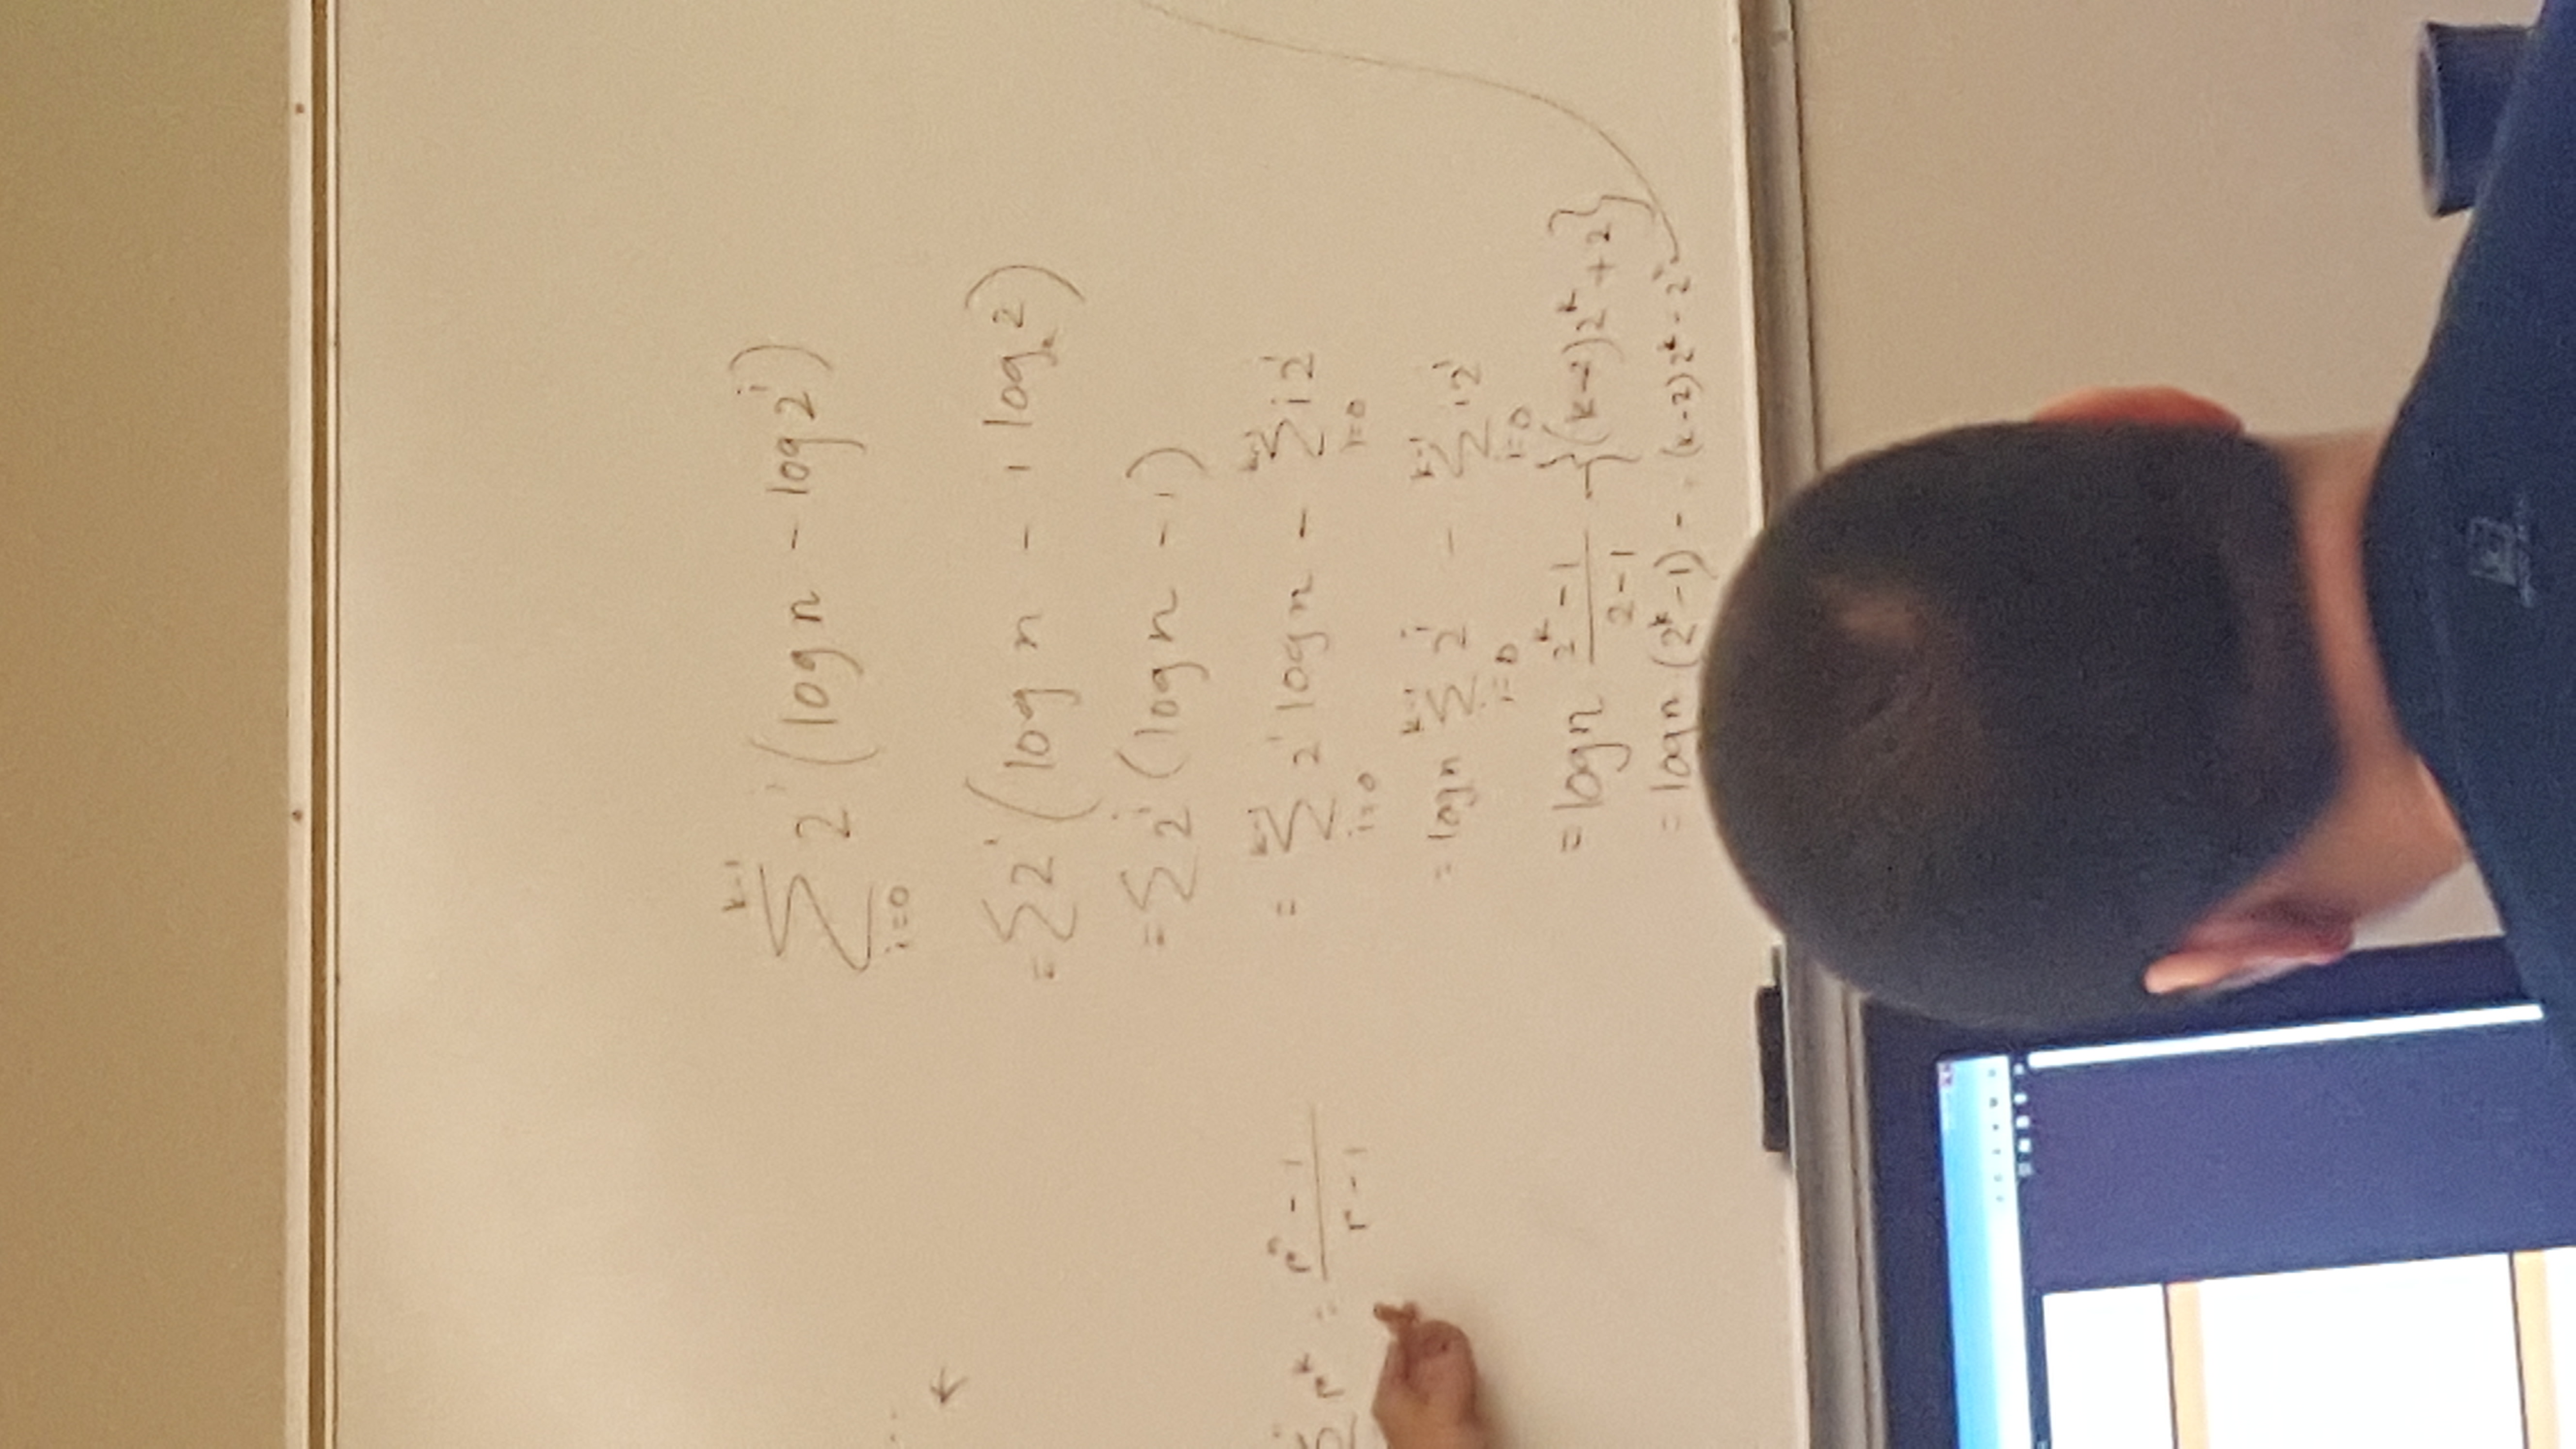 k-1
∑ 2^i (log n - log 2^i)
i=0
= ∑ 2^i (log n - i log₂ 2)
= ∑ 2^i (log n - i)
= ∑_{i=0}^{k-1} 2^i log n - ∑_{i=0}^{k-1} i 2^i
∑ r^k = (r^n - 1)/(r - 1)
= log n ∑_{i=0}^{k-1} 2^i - ∑_{i=0}^{k-1} i 2^i
= log n (2^k - 1)/(2 - 1) - {(k-2)2^k + 2}
= log n (2^k - 1) - (k-2)2^k - 2